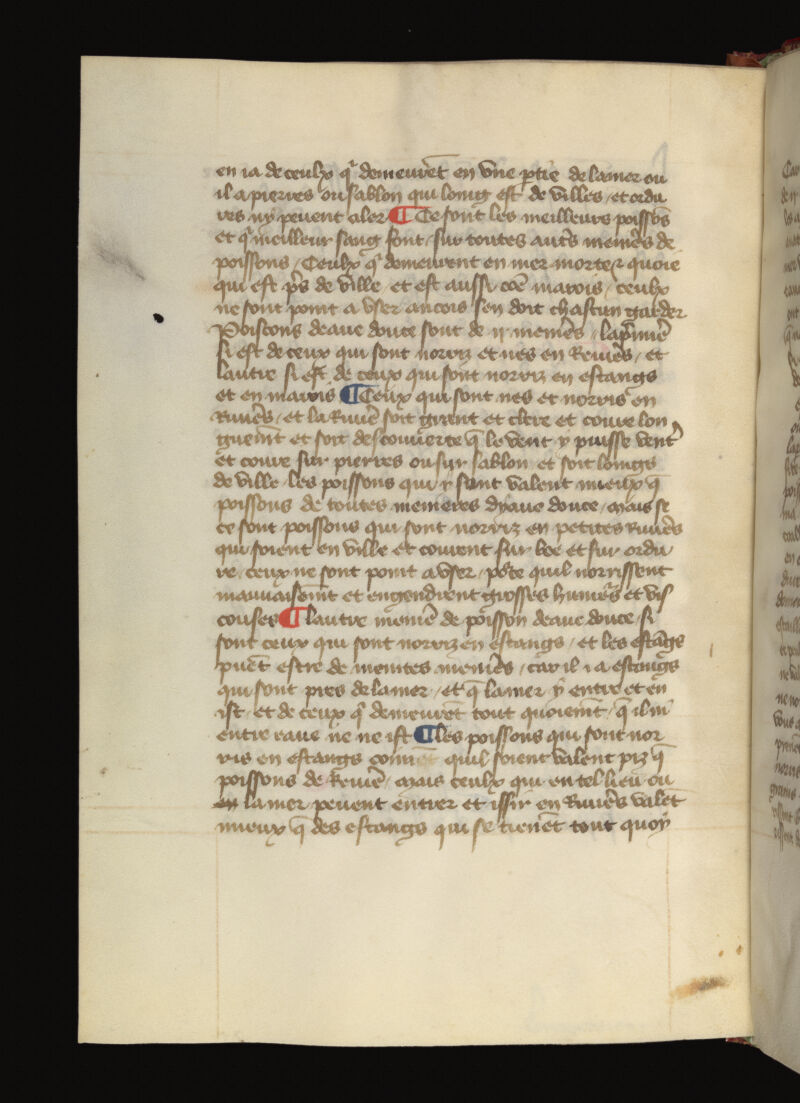 en i a de ceulx qͥ demeurēt en vne ptīe de la mer ou
il a pierres ou sablon qui loing est de villes / et ordu
res ny peuent aler ¶ Ce sont les meilleurs poissōs
et qͥ meilleur sang font / sur toutes autr̄s meniēs de
poissons / Ceulx qͥ demeurent en mer morte ⁊ quoie
qui est pr̄s de ville et est aussi cōe marois / ceulx
ne sont point a vser ancois sen doit chascun garder
Poissons deaue douce sont de ij meniēs / la pͥmiē
si est de ceux qui sont norriz et nes en Riuiēs / et
lautre si est de ceux qui sont norriz en estangs
et en marois ¶ Ceux qui sont nes et norris en
Riuiēs / et la Riuiē soit grant et clere et coure lon
guem̄t et soit descouuerte q̄ le vent y puisse vent̄
et coure sur pierres ou sur sablon et soit loings
de ville les poissons qui y sont valent mieulx q̄
poissons de toutes menieres dyaue douce / mais se
ce sont poissons qui sont norriz en petites Riuiēs
qui soient en ville et courent sur boe et sur ordu
re / ceux ne sont point a vser / pͦte quil norrissent
mauuaisem̄t et engendrent grosses humeͬs et vis
couses ¶ lautre meniē de poisson deaue douce si
sont ceux qui sont norriz en estangs / et les estāgs
puēt estre de meintes meniēs / car il i a estangs
qui sont pres de la mer / et q̄ la mer y entre et en
ist / et de ceux qͥ demeurēt tout quoiem̄t / q̄ il ni
entre eaue ne ne ist ¶ les poissons qui sont nor
ris en estangs com̄ēt quil soient valent piz q̄
poissons de Riuiē / mais ceulx qui en tel lieu ou
la mer peuent entrer et issir en Riuiēs valēt
mieux q̄ des estangs qui se tienēt tout quoy